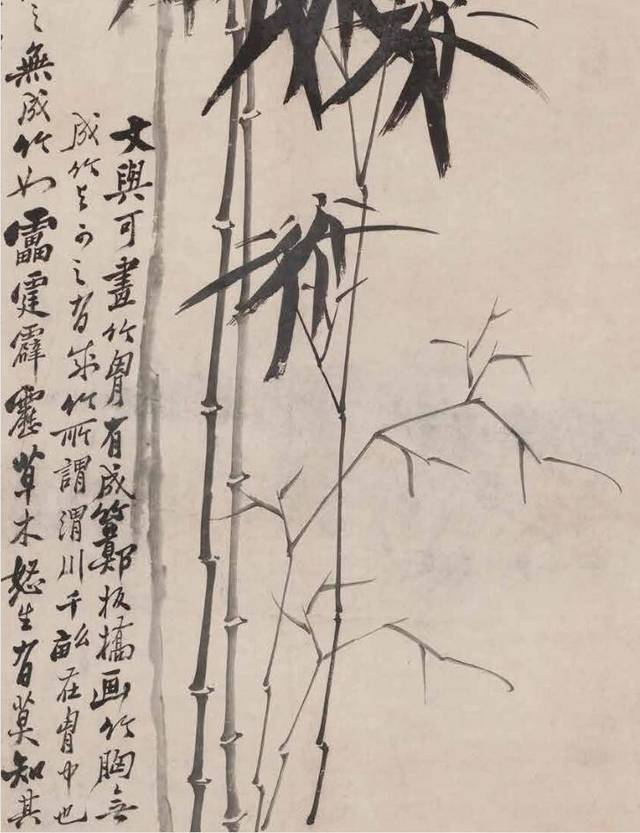 文與可畫竹胷有成竹鄭板橋画竹胸無
成竹与可之有成竹所謂渭川千畝在胷中也
之無成竹如靁霆霹靂草木怒生有莫知其